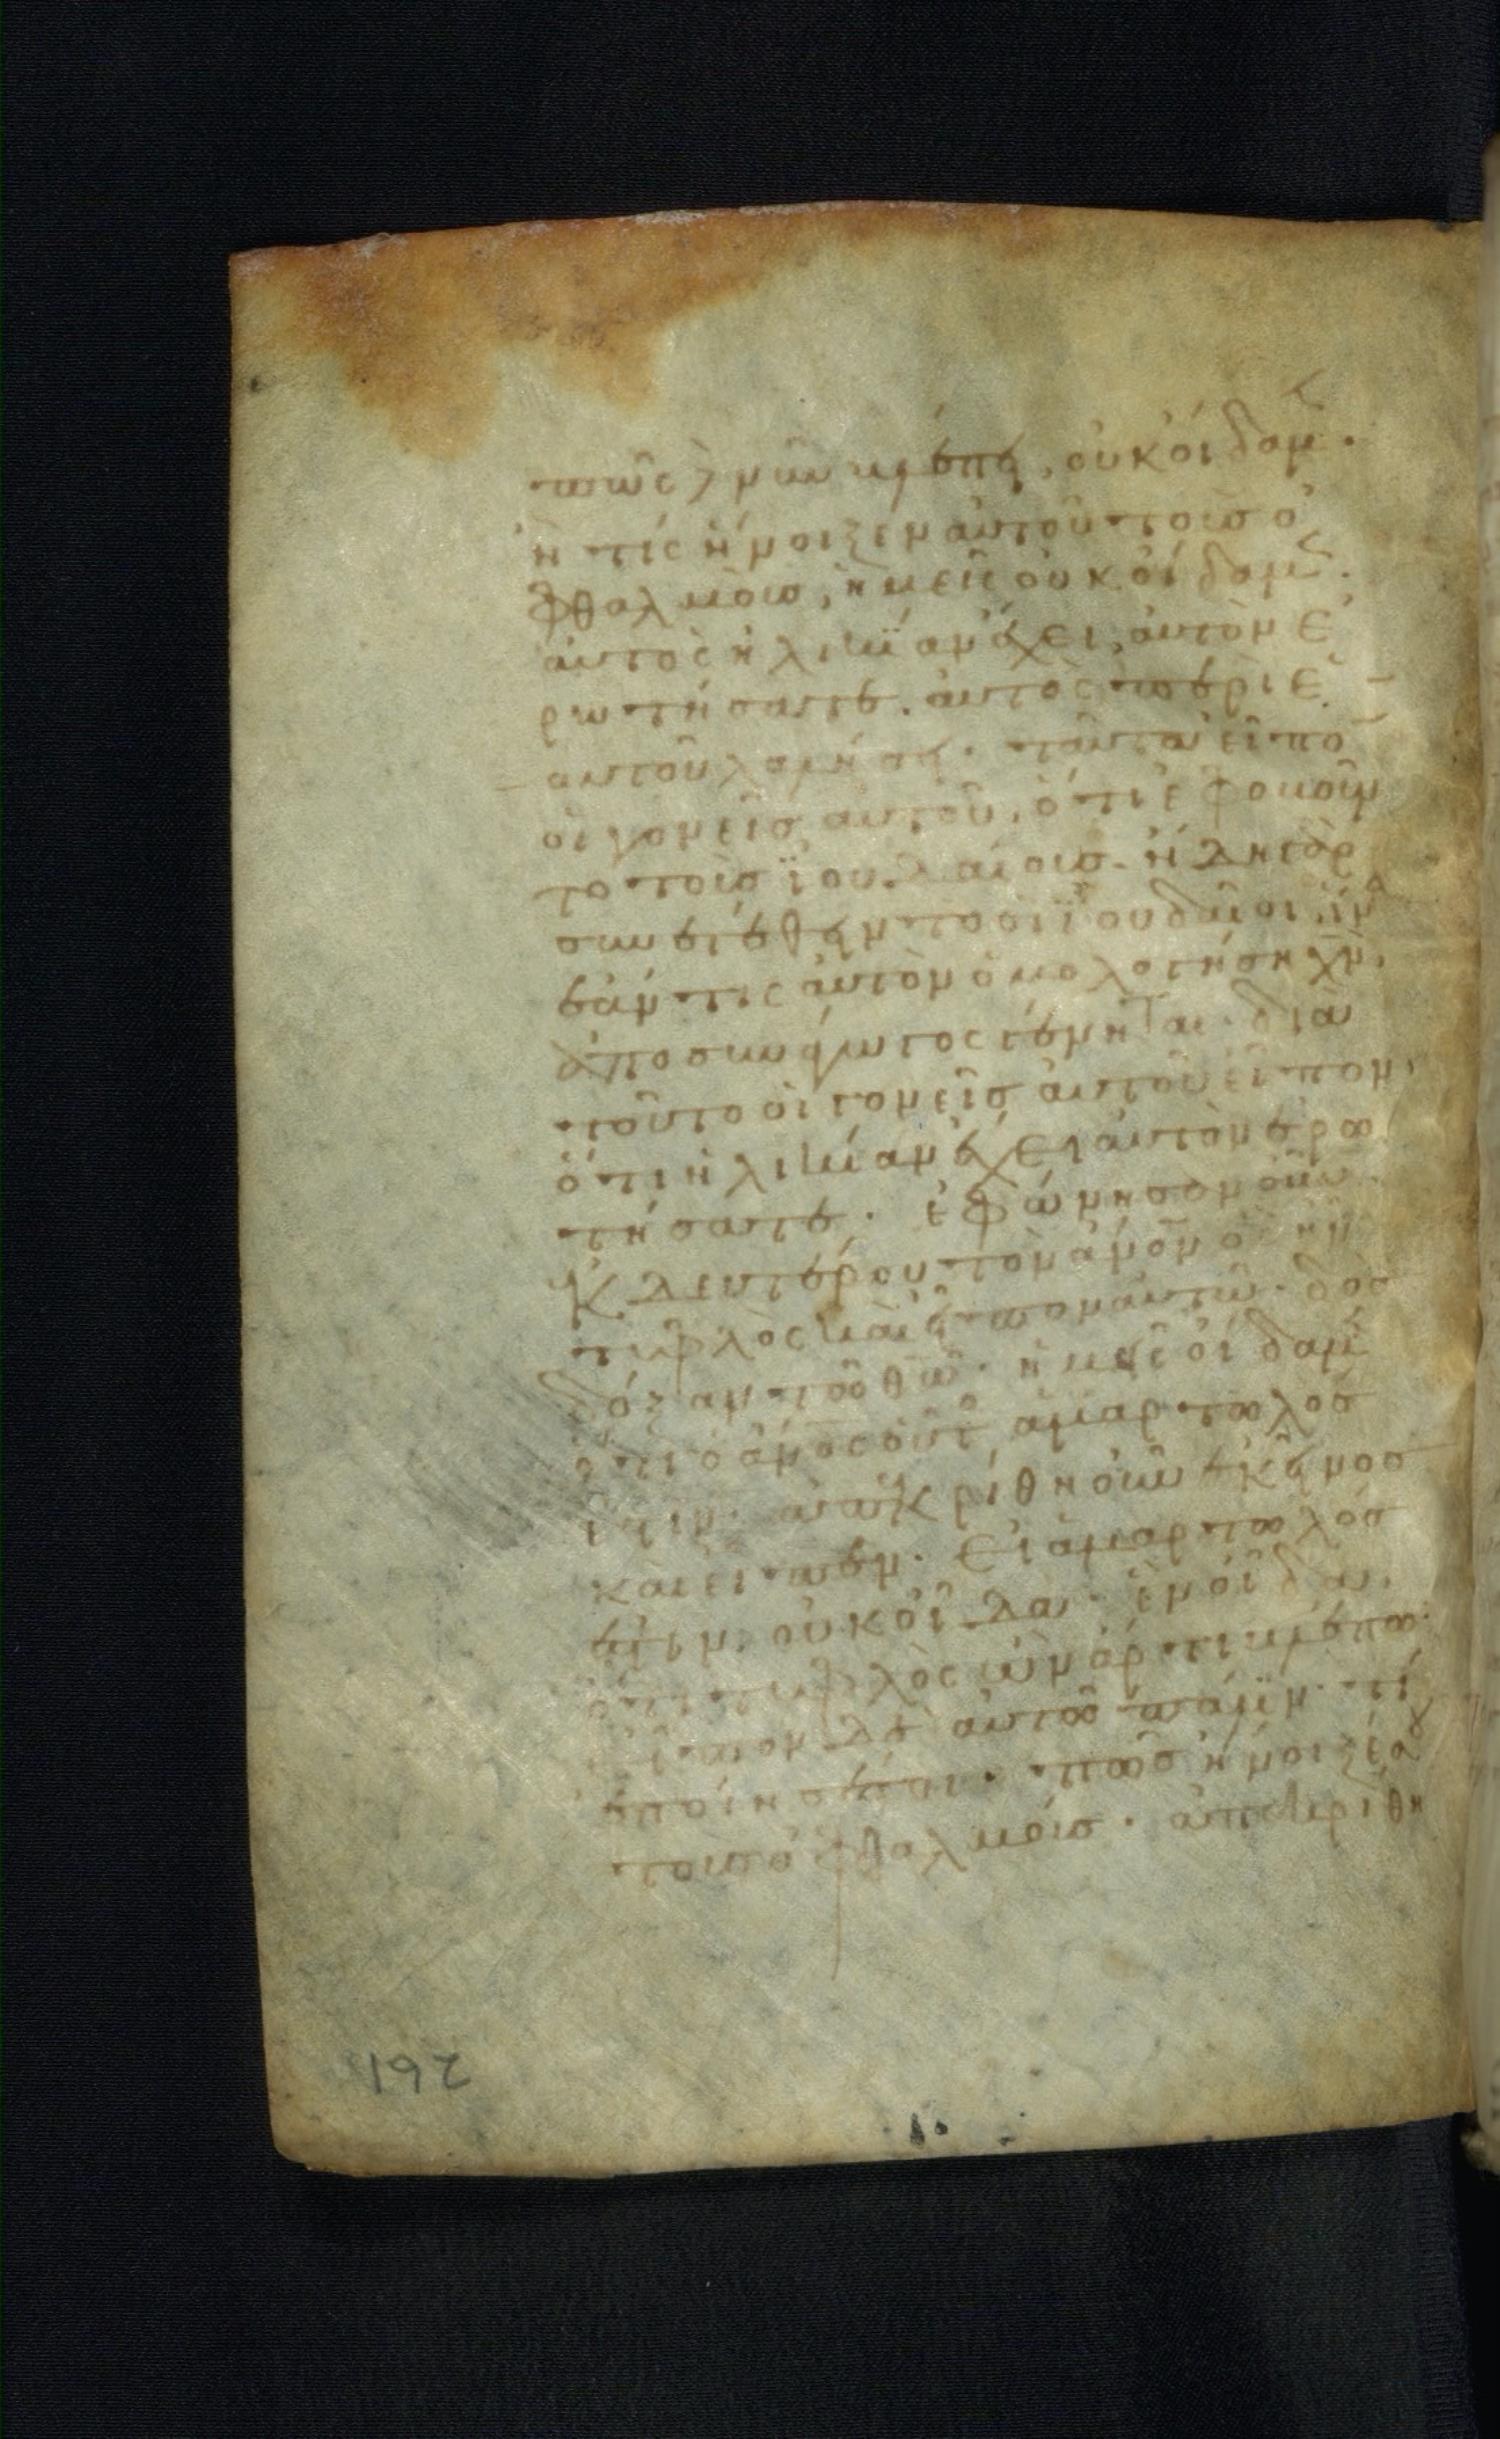 πῶς δὲ νῦν βλέπει, οὐκ οἴδαμ̅.
ἢ τίς ἤνοιξεν αὐτοῦ τοὺς ὀ
φθαλμοὺς, ἡμεῖς οὐκ οἴδαμ̅.
αὐτὸς ἡλικίαν ἔχει, αὐτὸν ἐ
ρωτήσατε. αὐτὸς περὶ ἑ
αυτοῦ λαλήσει. ταῦτα εἶπο̅
οἱ γονεῖς αὐτοῦ, ὅτι ἐφοβοῦν
το τοὺς ϊουδαίους. ἤδη γὰρ
συνετέθειντο οἱ ϊουδαῖοι ἵνα
ἐάν τις αὐτὸν ὁμολογήσῃ χ̅ν̅,
ἀποσυνάγωγος γένηται. διὰ
τοῦτο οἱ γονεῖς αὐτοῦ εἶπον,
ὅτι ἡλικίαν ἔχει αὐτὸν ἐρω
τήσατε. ἐφώνησαν οὖν
ἐκ δευτέρου τὸν ἄ̅ν̅ο̅ν̅ ὃς ἦν
τυφλὸς καὶ εἶπον αὐτῷ. δὸς
δόξαν τῷ θ̅ω̅. ἡμεῖς οἴδαμ̅
ὅτι ὁ ἄ̅ν̅ο̅ς̅ οὗτος ἁμαρτωλός
ἐστιν. ἀπεκρίθη οὖν ἐκεῖνος
καὶ εἶπεν. εἰ ἁμαρτωλός
ἐστιν οὐκ οἶδα. ἓν οἶδα,
ὅτι τυφλὸς ὢν ἄρτι βλέπω.
εἶπον δὲ αὐτῷ πάλϊν. τί
ἐποίησέ σοι. πῶς ἤνοιξέ σου
τοὺς ὀφθαλμούς. ἀπεκρίθη
192